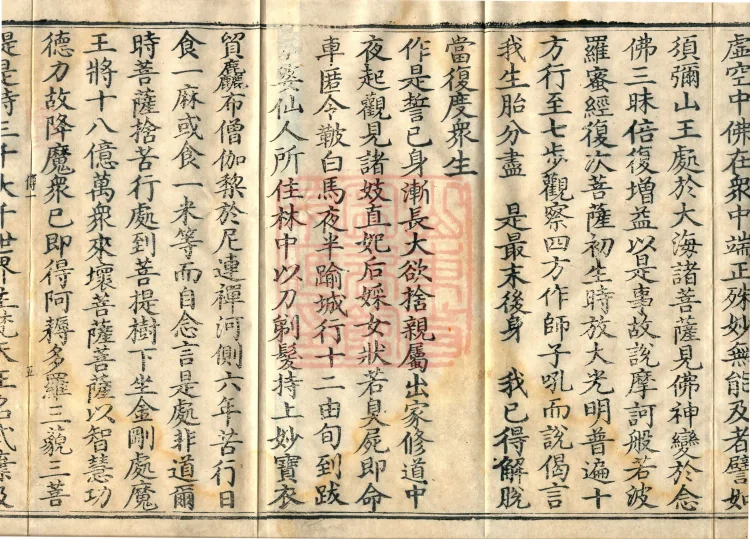 虛空中佛在衆中端正殊妙無能及者譬如
須彌山王處於大海諸菩薩見佛神變於念
佛三昧倍復増益以是事故說摩訶般若波
羅蜜經復次菩薩初生時放大光明普遍十
方行至七步觀察四方作師子吼而說偈言
我生胎分盡　是最末後身　我已得解脫
當復度衆生
作是誓已身漸長大欲捨親屬出家修道中
夜起觀見諸妓直妃后婇女狀若臭屍即命
車匿令鞁白馬夜半踰城行十二由旬到跋
婆仙人所住林中以刀剃髮持上妙寶衣
貿麤布僧伽黎於尼連禪河側六年苦行日
食一麻或食一米等而自念言是處非道爾
時菩薩捨苦行處到菩提樹下坐金剛處魔
王將十八億萬衆來壞菩薩菩薩以智慧功
德力故降魔衆已即得阿耨多羅三藐三菩
提是時三千大千世界主梵天王名式棄及